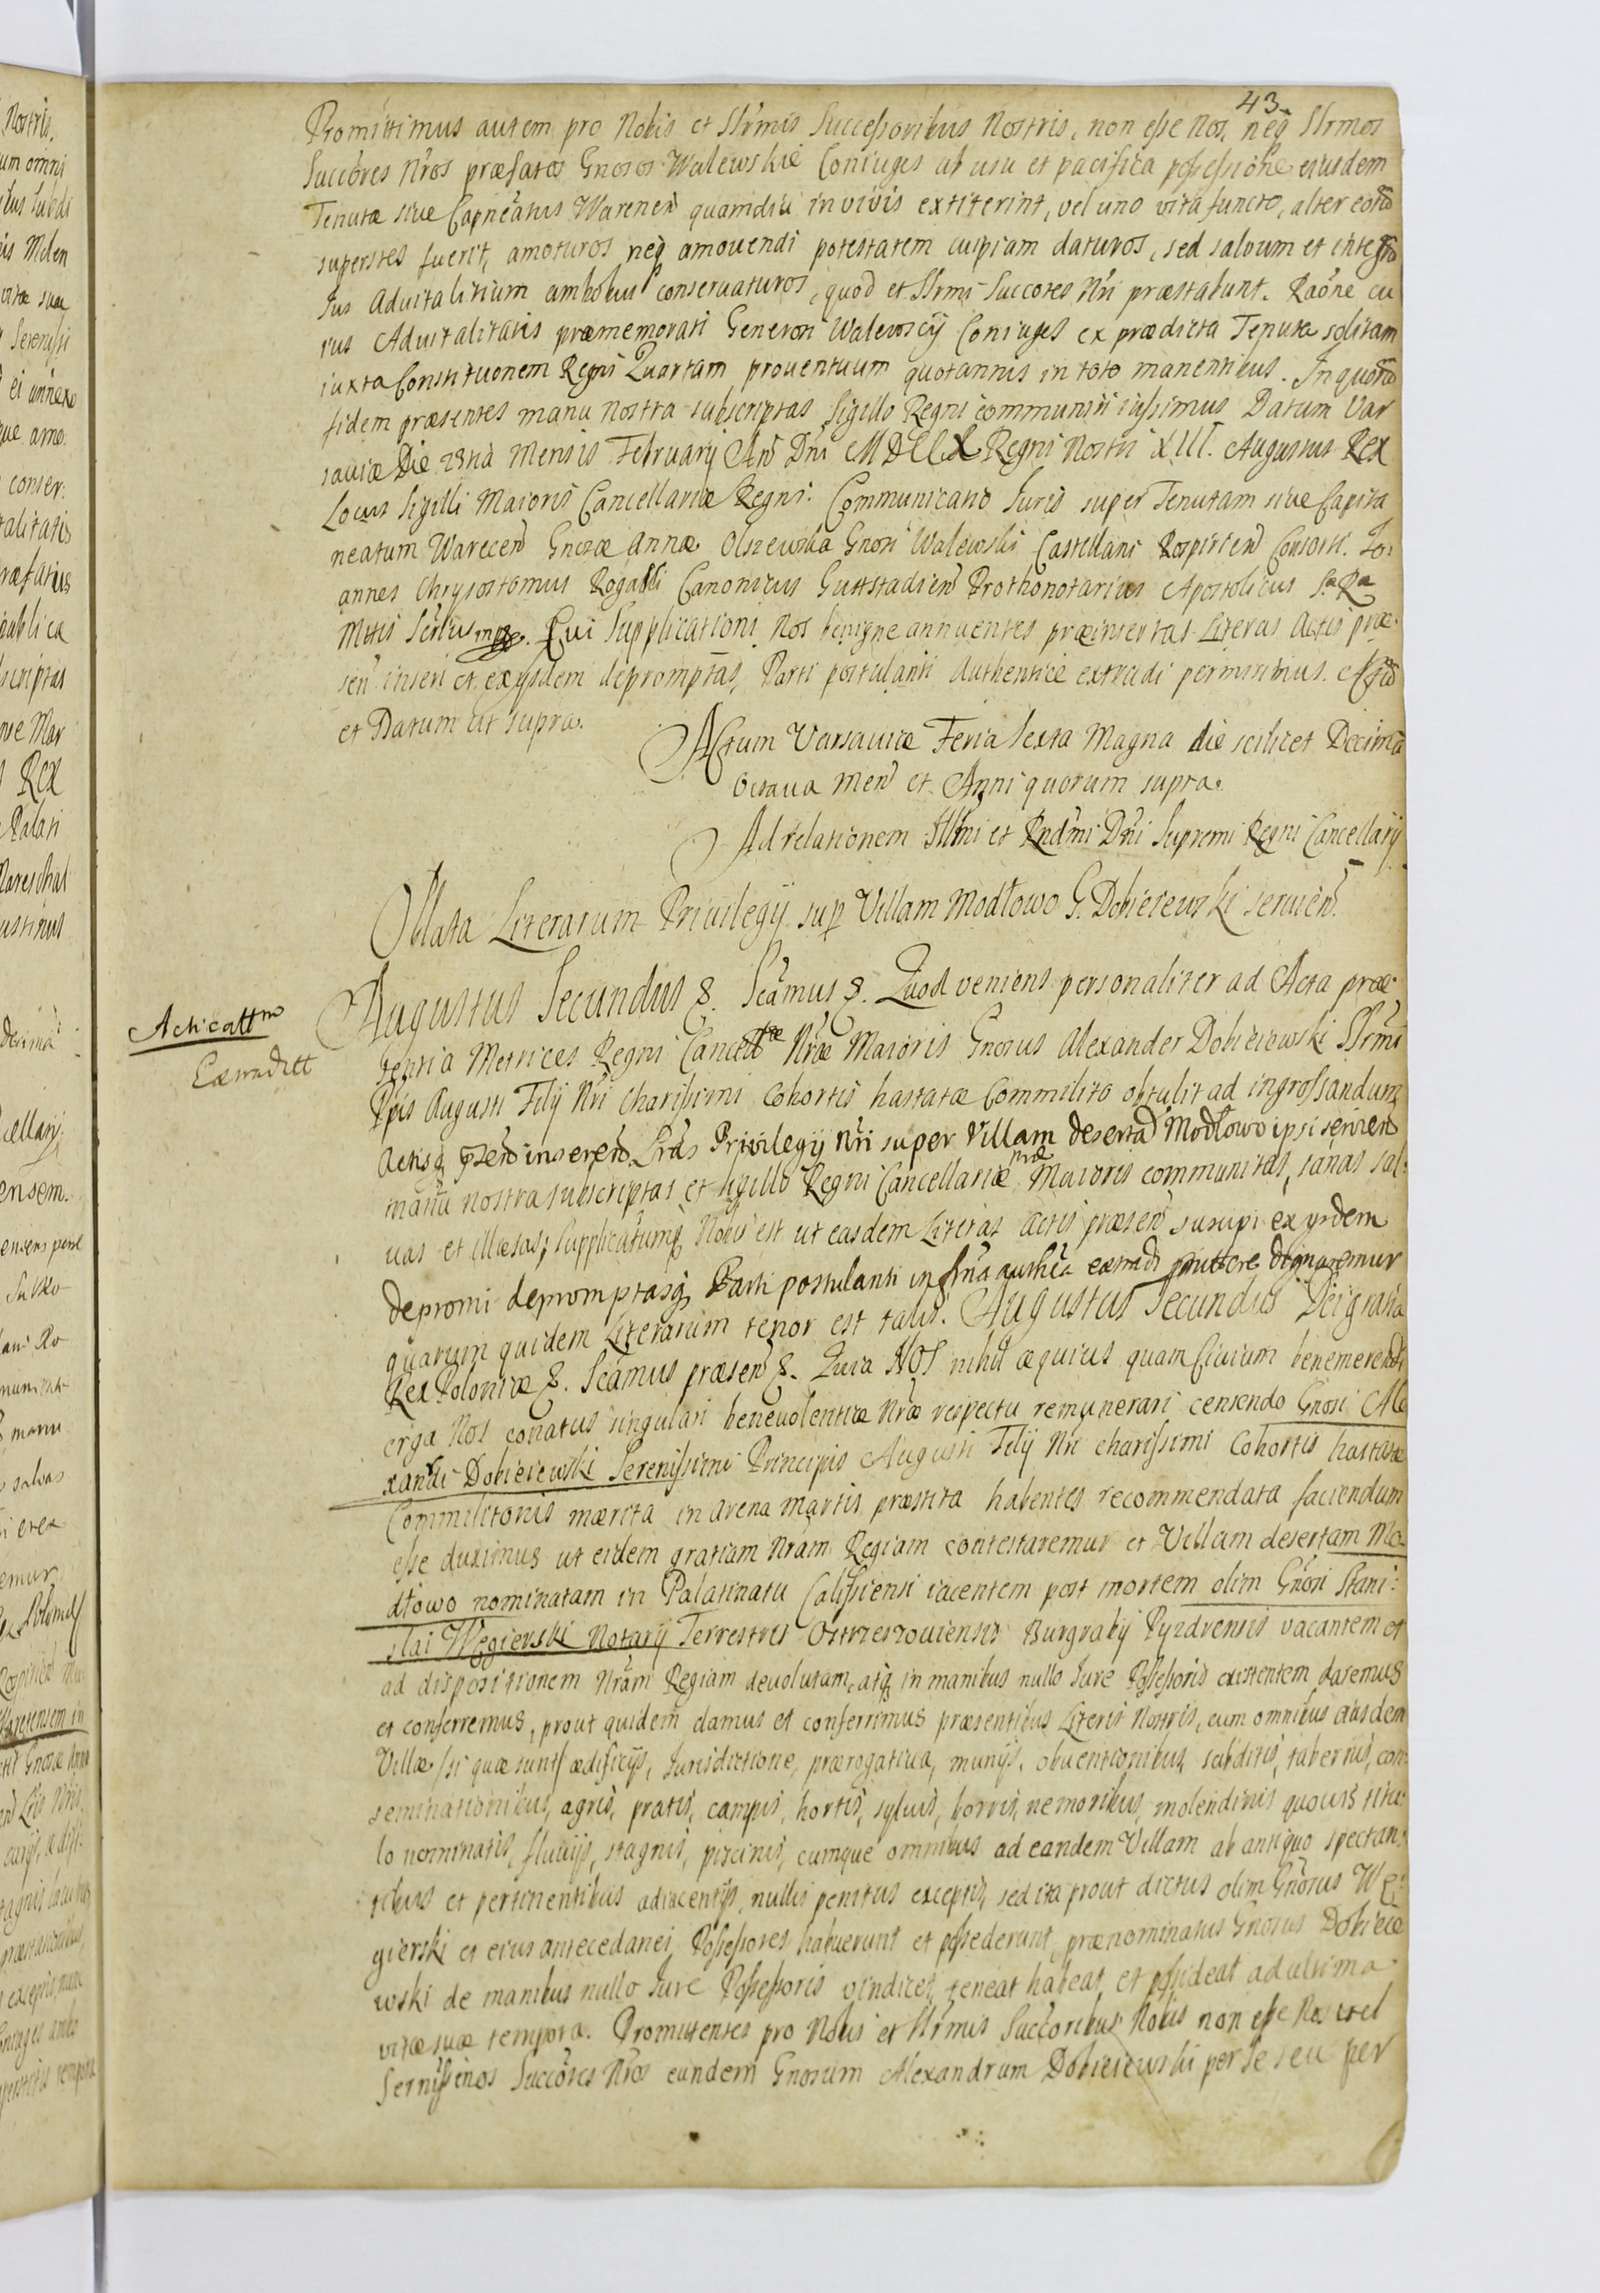 43
Promittimus autem pro Nobis et Ssrmis Successoribus Nostris, non esse Nos, neq Ssrmos
Succores Nros præfatos Gnosos Walewskie Coniuges ab usu et pacifica possessione eiusdem
Tenutæ siue Capneatus Warecen quamdiu in vivis extiterint, vel uno vita functo, alter eorũ
superstes fuerit, amoturos neq amouendi potestatem cuipiam daturos, sed saluum et integrũ
Jus Aduitalitium ambobus conseruaturos, quod et Ssrmi Succores Nri præstabunt. Raõne cu
ius Aduitalitatis præmemorati Generosi Walewscy Coniuges ex prædicta Tenuta solitam
iuxta Constitutionem Regni Quartam prouentuum quotannis in toto manentibus. In quorũ
fidem præsentes manu nostra subscriptas Sigillo Regni communiri iussimus Datum Var
sauiæ Die 23tia Mensis February An Dni MDCCX Regni Nostri XIII. Augustus Rex
Locus Sigilli Maioris Cancellariæ Regni. Communicatio Juris super Tenutam siue Capita
neatum Warecen Gnosæ Annæ Olszewska Gnosi Walewski Castellani Rospirien Consorti. Jo:
annes Chrysostomus Rogalli Canonicus Guttstadien Prothonotarius Apostolicus S.Ra
Mttis Scrius mpp. Cui Supplicationi Nos benigne annuentes præinsertas Literas Actis præ:
sen inseri et ex ijsdem depromptas, Parti postulanti Authentice extradi permisimus. Actũ
et Datum ut supra.
Actum Varsauiæ Feria Sexta Magna die scilicet Decima
Octaua Men et Anni quorum supra.
Ad relationem Illmi et Rndmi Dni Supremi Regni Cancellarij
Oblata Literarum Priuilegij sup Villam Modłowo G. Dobieiewski seruien.
Augustus Secundus &. Scamus &. Quod veniens personaliter ad Acta præ:
Acticattm
sentia Metrices Regni Cancellræ Nræ Maioris Gnosus Alexander Dobieiowski Ssrmi
Extraditt
Ppis Augusti Filij Nri Charissimi Cohortis hastatæ Commilito obtulit ad ingrossandum
Actisq psen inseren Lras Priuilegij Nri super Villam desertã Modłowo ipsi seruien
manu nostra subscriptas et sigillo Regni Cancellariæ nræ Maioris communitas, sanas sal:
uas et illæsas, Supplicatumq Nobis est ut easdem Literas Actis præsen suscipi ex ysdem
depromi depromptasq Parti postulanti in fina authca extradi pmittere dignaremur
quarum quidem Literarum tenor est talis. Augustus Secundus Dei gratia
Rex Poloniæ &. Scamus præsen &. Quia Nos nihil æquius quam Ciuium benemerendi
erga Nos conatus singulari beneuolentiæ Nræ respectu remunerari censendo Gnosi Ale
xandri Dobieiewski Serenissimi Principis Augusti Filij Nri charissimi Cohortis hastatæ
Commilitonis mærita in arena martis præstita habentes recommendata faciendum
esse duximus ut eidem gratiam Nram Regiam contestaremur et Villam desertam Mo
dłowo nominatam in Palatinatu Calissiensi iacentem post mortem olim Gnosi Stani:
slai Węgierski Notarij Terrestris Ostrzeszouiensis Burgrabij Pyzdrensis vacantem et
ad dispositionem Nram Regiam deuolutam, atq in manibus nullo Jure Possessoris existentem daremus
et conferremus, prout quidem damus et conferrimus præsentibus Literis Nostris, cum omnibus eiusdem
Villæ /si quæ sunt/ ædificijs, Jurisdictione, prærogatiua, munijs, obuentionibus, subditis, tabernis, con:
seminationibus, agris, pratis, campis, hortis, syluis, borris, nemoribus, molendinis quouis titu:
lo nominatis, fluuijs, stagnis, piscinis, cumque omnibus ad eandem Villam ab antiquo spectan:
tibus et pertinentibus adiacentijs, nullis penitus exceptis, sed ita prout dictus olim Gnosus Wę:
gierski et eius antecedanei Possessores habuerunt et possederunt, prænominatus Gnosus Dobieie
wski de manibus nullo Jure Possessoris vindicet, teneat habeat, et possideat ad ultima
vitæ suæ tempora. Promittentes pro Nobis et Ssrmis Succoribus Nobis non esse Nos vel
Sernissimos Succores Nros eundem Gnosum Alexandrum Dobieiewski per se seu per